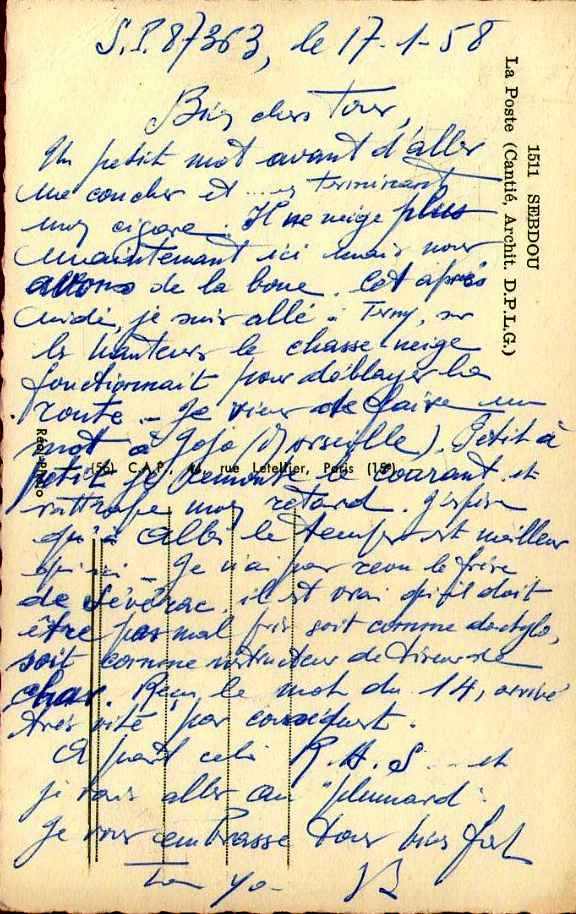 S.P. 87363, le 17-1-58
Bien chers Tous,
Un petit mot avant d'aller
me coucher et ... en terminant
mon cigare. Il ne neige plus
maintenant ici mais nous
avons de la boue. Cet après
midi, je suis allé à Terny, sur
les hauteurs le chasse-neige
fonctionnait pour déblayer la
route - Je viens de faire un
mot à Jojo (Marseille). Petit à
petit je remonte le courant et
rattrape mon retard. J'espère
qu'à Albi le temps est meilleur
qu'ici - Je n'ai pas revu le frère
de Sévérac, il est vrai qu'il doit
être pas mal pris soit comme dactylo,
soit comme instructeur de tireurs de
char. Reçu le mot du 14, arrivé
très vite par conséquent.
A part cela R.A.S ... et
je vais aller au "plumard".
Je vous embrasse tous bien fort
1511 SEBDOU
La Poste (Cantié, Archit. D.P.L.G.)
Réel-Photo
(56) C.A.P., 44, rue Letellier, Paris (15e)